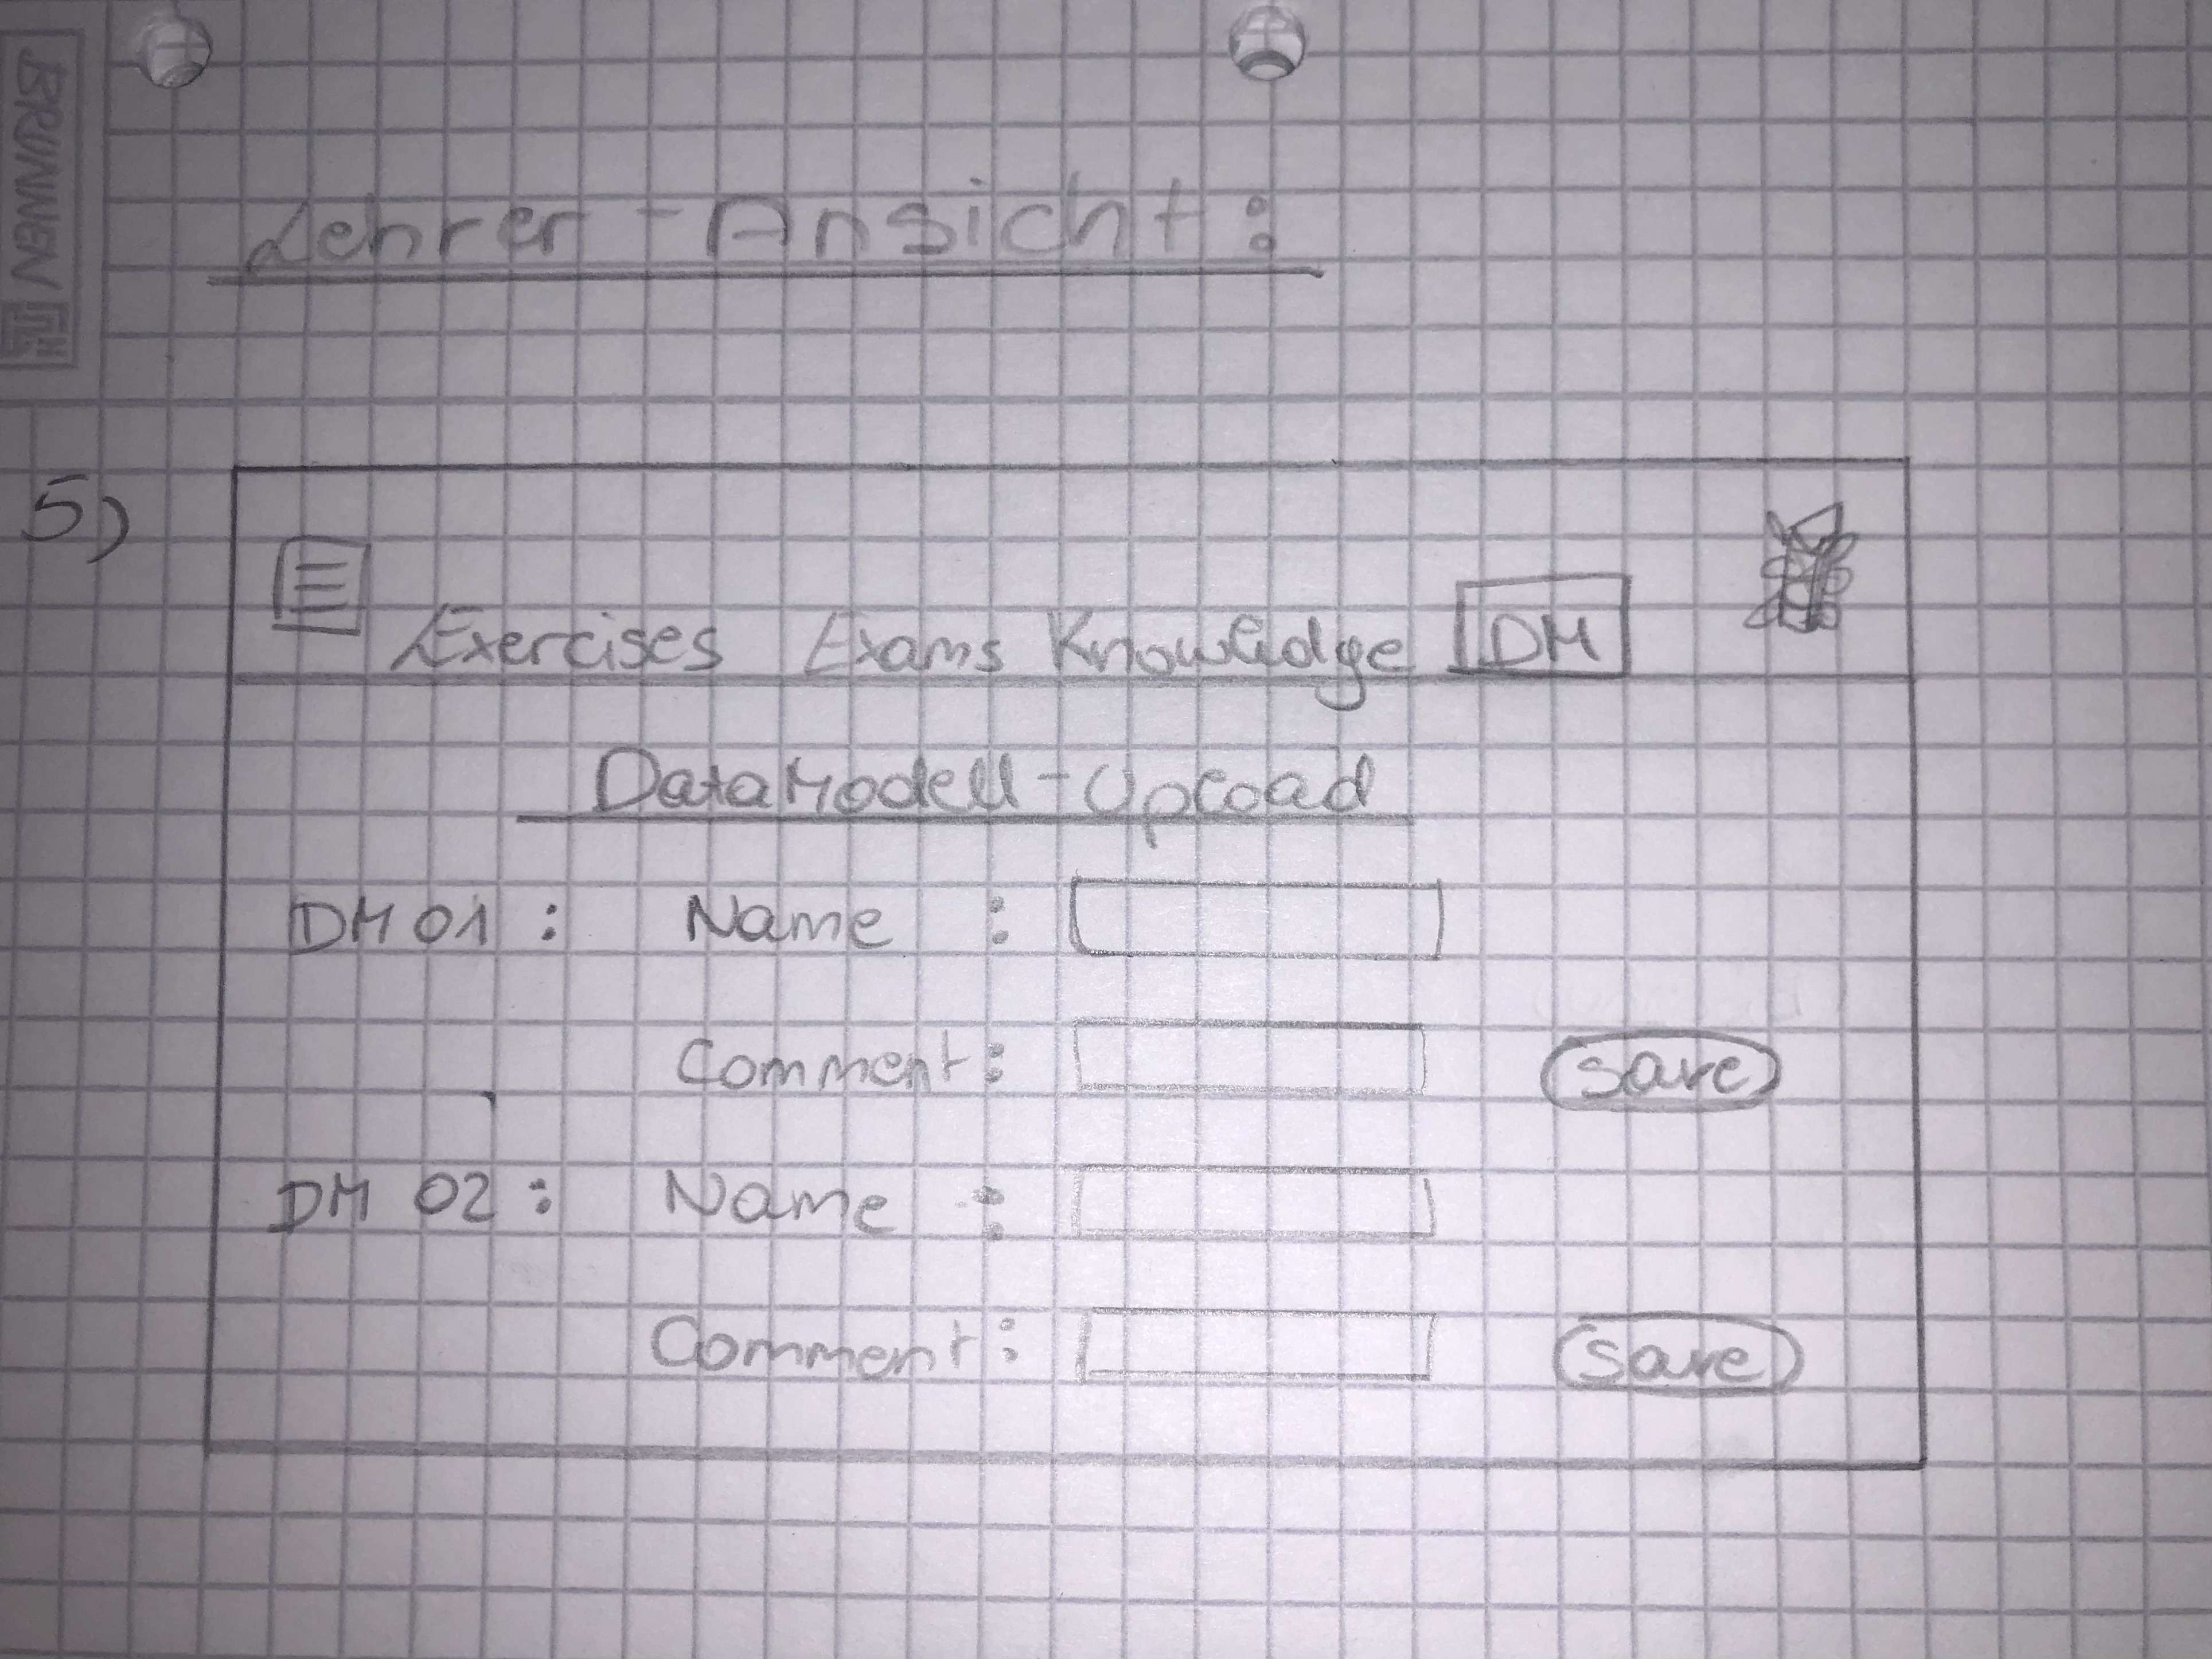 BRUNNEN
Lehrer-Ansicht:
5)
Exercises Exams Knowledge DM
DataModell-Upload
DM 01 : Name :
Comment : save
DM 02 : Name :
Comment : save